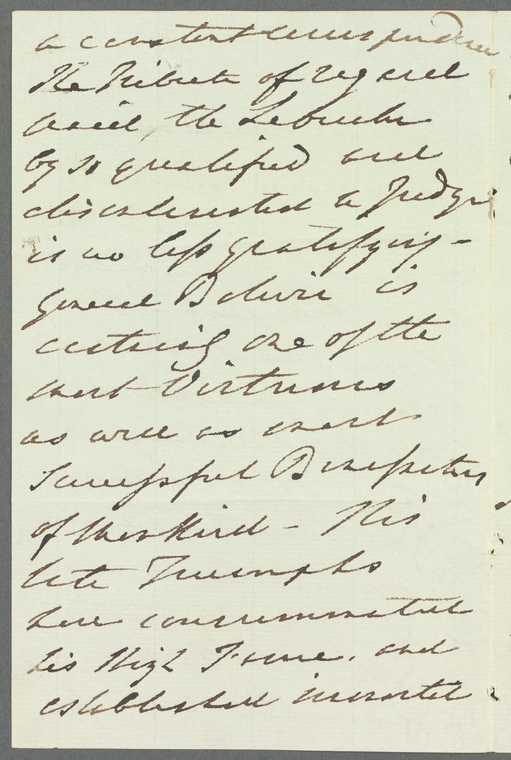 a constant correspondence
the Tribute of regard
paid the Liberator
by so qualified and
disinterested a Judge
is no less gratifying –
General Bolivar is
certainly one of the
most Virtuous
as well as most
Successful Benefactors
of Mankind – His
late Triumphs
have consummated
his High Fame, and
established immortal